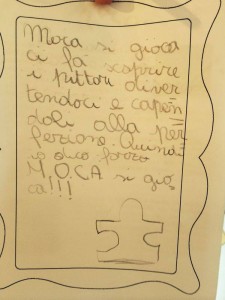 Moca si gioca
ci fa scoprire
i pittori diver
tendoci e capen
doli alla per
fezione. Quindi
io dico forza
M.O.C.A si gio,
ca!!!